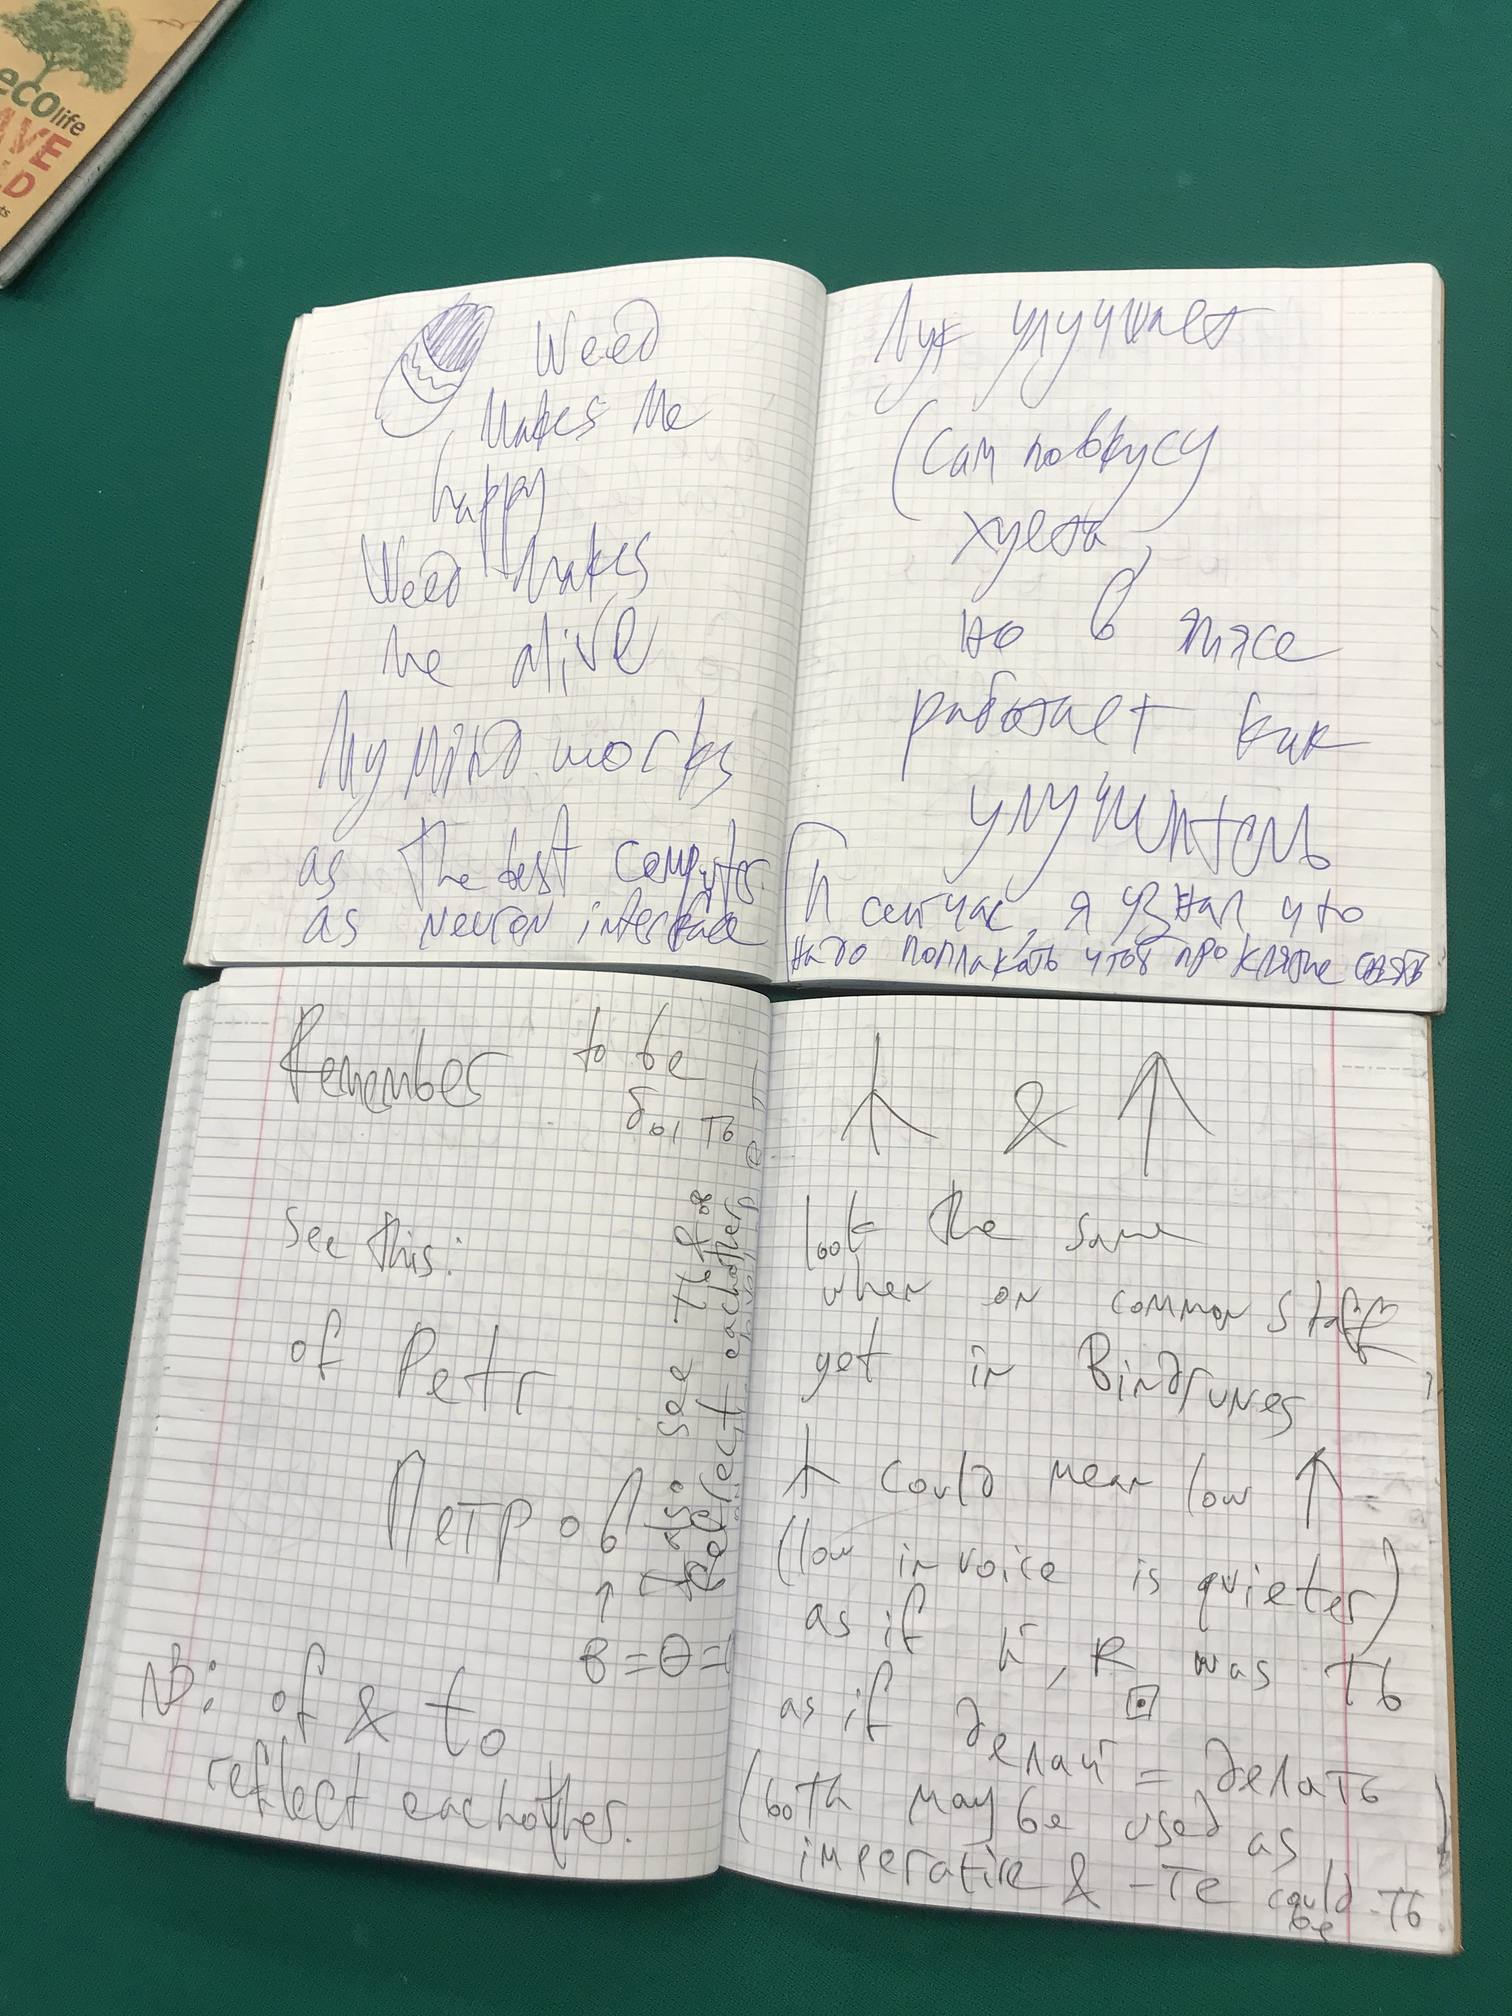 eco life
Weed
makes me
happy
Weed makes
me alive
My mind works
as the best computer
as neuron interface
Лук улучшает
(Сам по вкусу
хуета,
но в мясе
работает как
улучшитель
И сейчас, я узнал что
надо поплакать чтоб проклятие снять
Remember to be
быть
see this:
of Petr
Петров
↑
B = θ =
NB: of & to
reflect eachother.
also see ть for
reflect eachother
&
look the same
when on common staff
yet in Bindrunes
could mean low ↑
(low in voice is quieter)
as if й, R was ть
as if делай = делать
(both may be used as
imperative & -те could be -ть